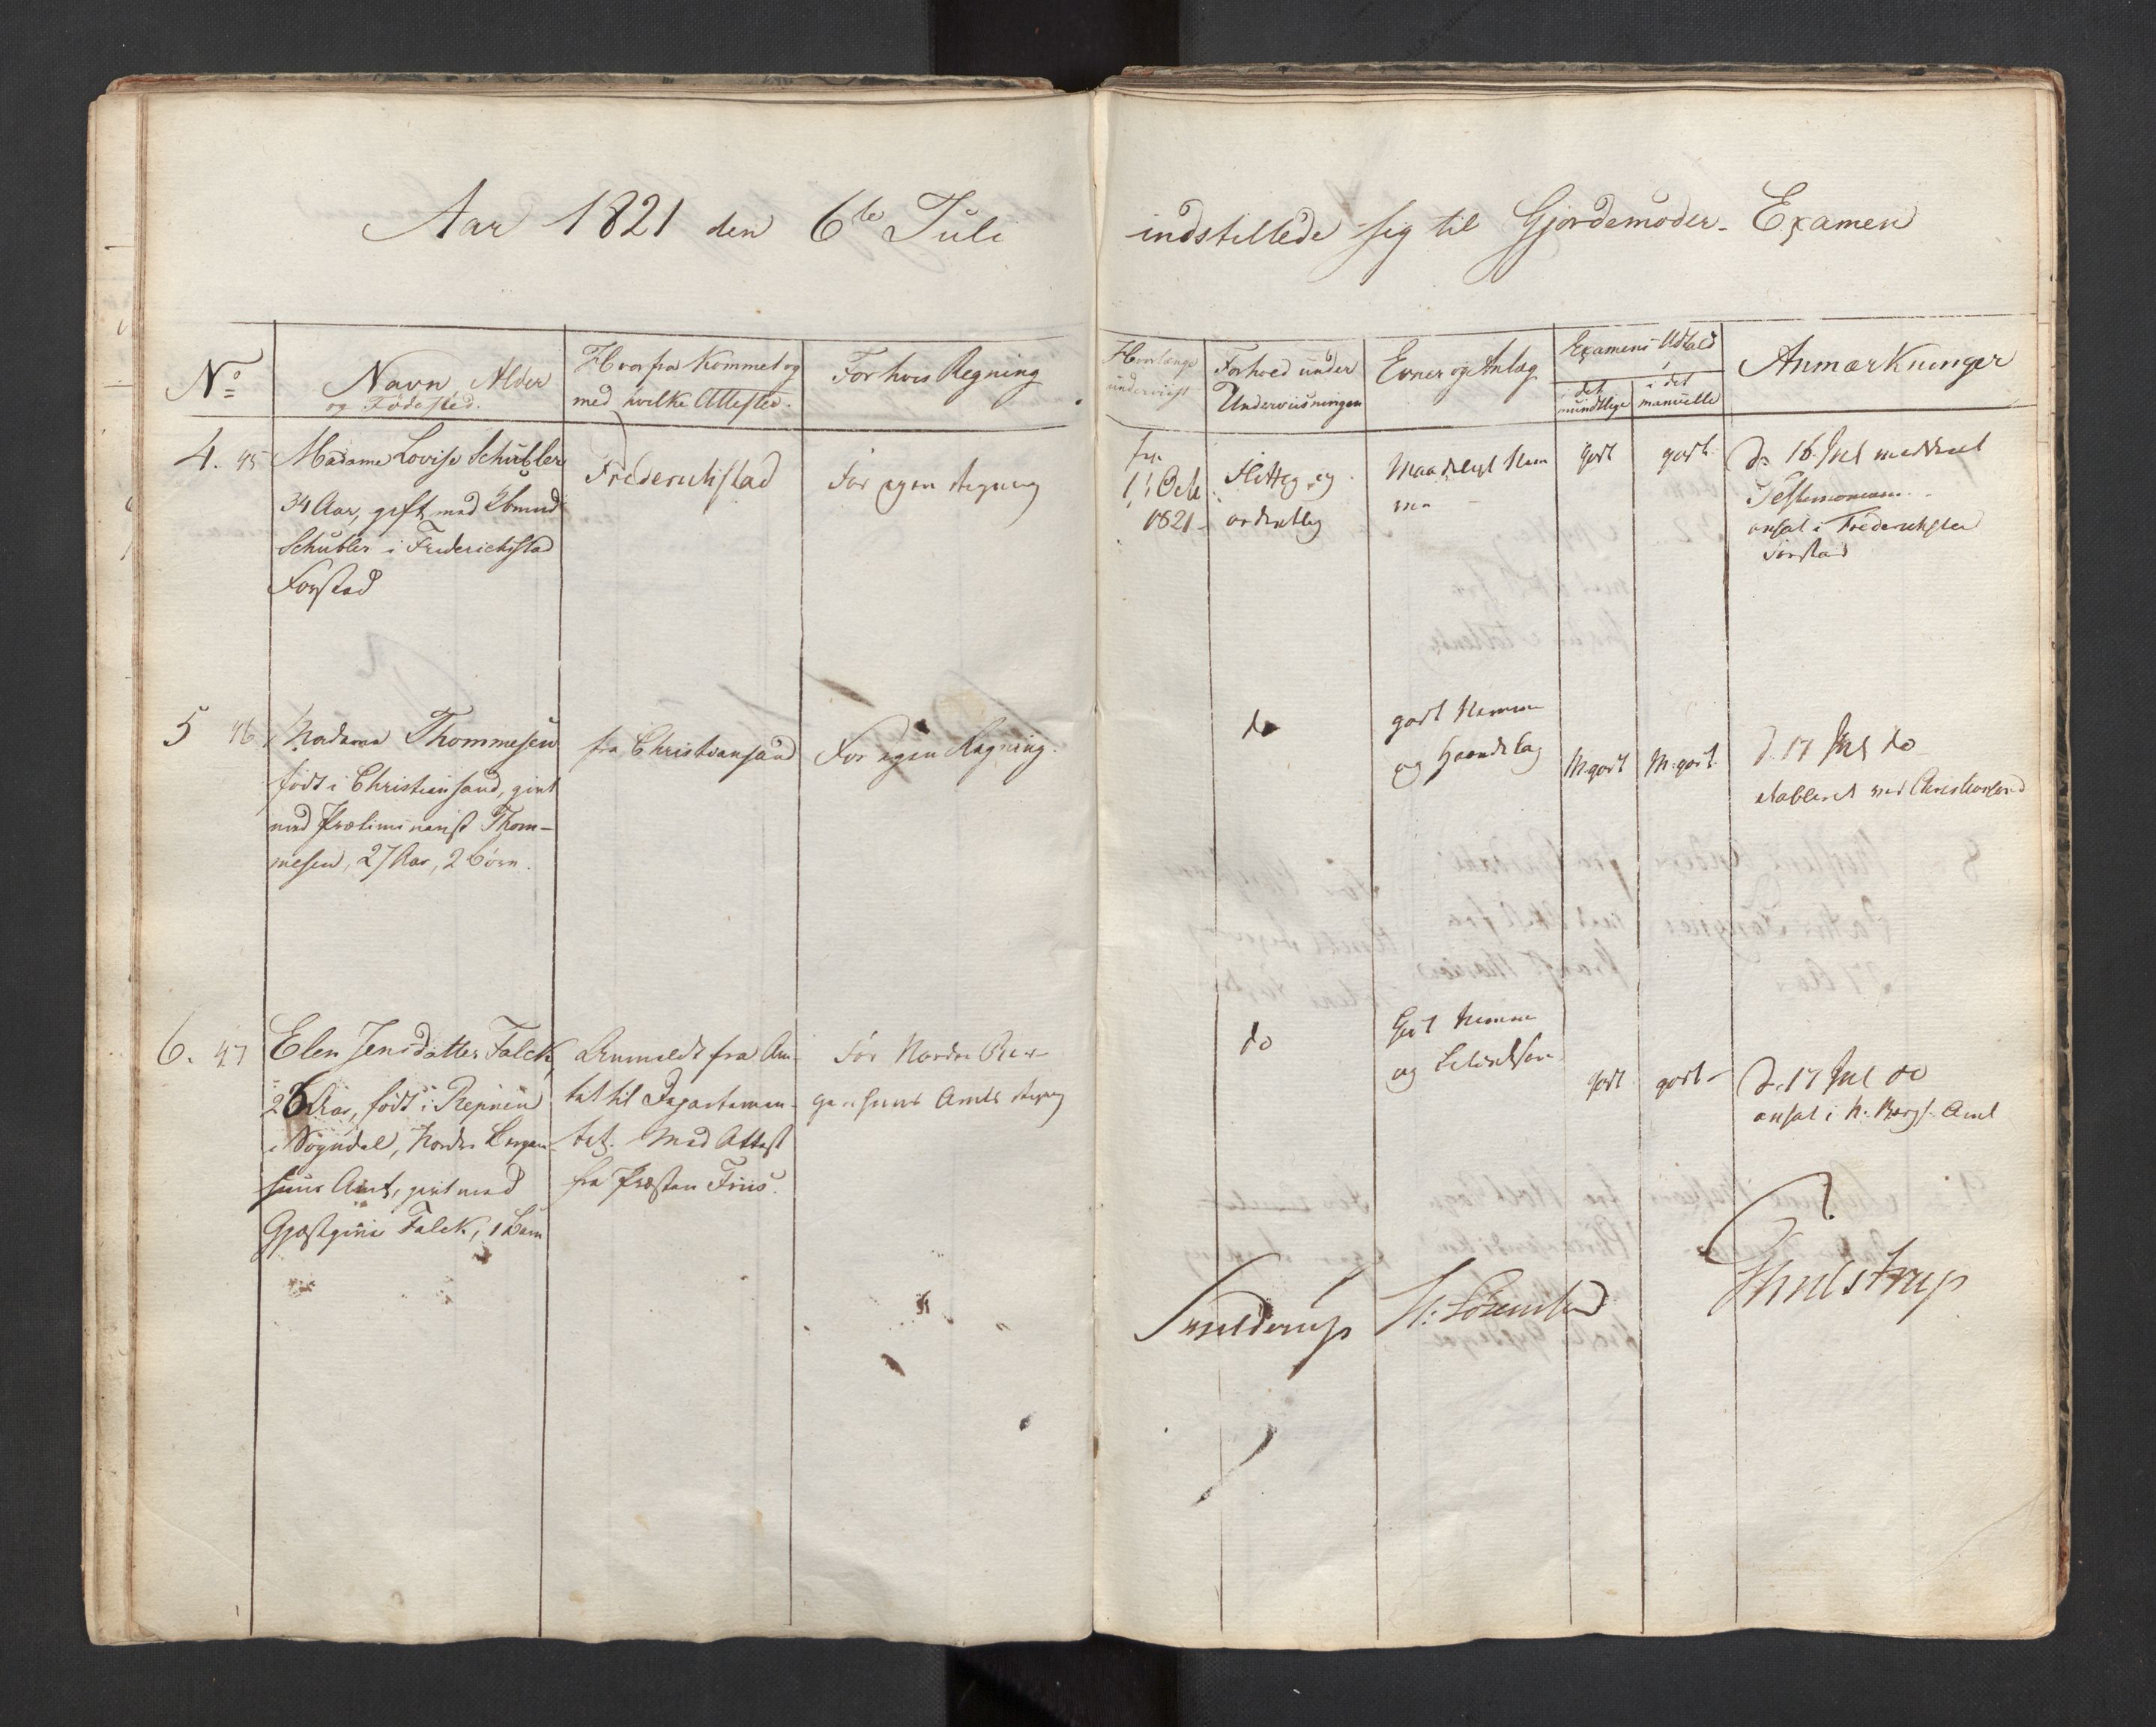 Aar 1821 den 6te Juli indstillede sig til Gjordemoder-Examen
No
Navn, Alder
og Födested.
Hvorfra kommet og
med hvilke Attester.
For hvis Regning
Hvorlænge
underviist
Forhold under
Underviisningen
Evner og Anlæg
Examens Udfald
i
det
mundtlige
i det
manuelle
Anmærkninger
4. 45
Madame Lovise Schübler
34 Aar, gift med
Schübler i Friderichstad
Forstad
Frederichstad
For egen Regning
fra
1 Oct
1821
Flittig og
ordentlig
Maadeligt Nem
me
godt
godt
d. 16 Jul meddeelt
Testimonium
ansat i Frederichstad
Forstad
5 46
Madame Thommesen
födt i Christiansand, givt
med Præliminarist Thom-
mesen, 27 Aar, 2 Börn.
fra Christiansand
For egen Regning.
do
godt Nemme
og Haandelag
M. godt
M. godt
d. 17 Jul do
etableret ved Christiansand
6. 47
Elen Jensdatter Falck
26 Aar, födt i
i Sogndal, Nordre Bergen-
huus Amt, givt med
Gjæstgiver Falck, 1 Barn
Anmeldt fra Am-
tet til Departemen-
tet. Med Attest
fra Præsten Friis.
For Nordre Ber-
genhuus Amts Regning
do
Godt Nemme
og
godt
godt
d. 17 Jul do
ansat i N. Bergh. Amt
Skielderup
M: Sörenssen
Thulstrup